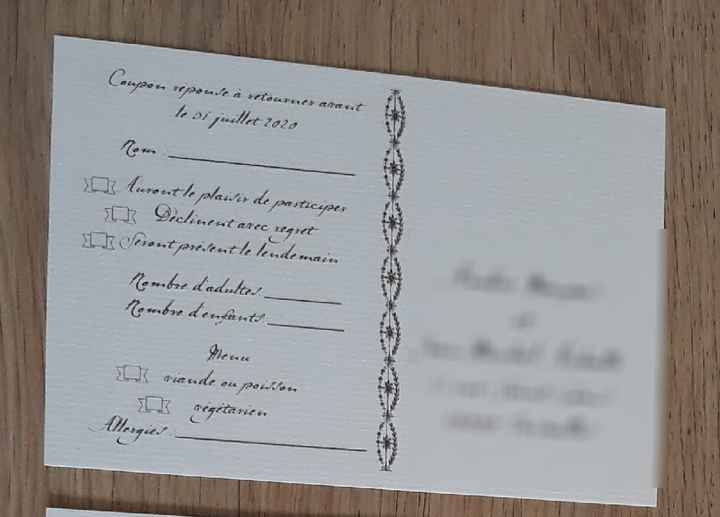 Coupon reponse à retourner avant
le 31 juillet 2020
Nom
Auront le plaisir de participer
Déclinent avec regret
Seront présent le lendemain
Nombre d'adultes
Nombre d'enfants
Menu
viande ou poisson
végétarien
Allergies